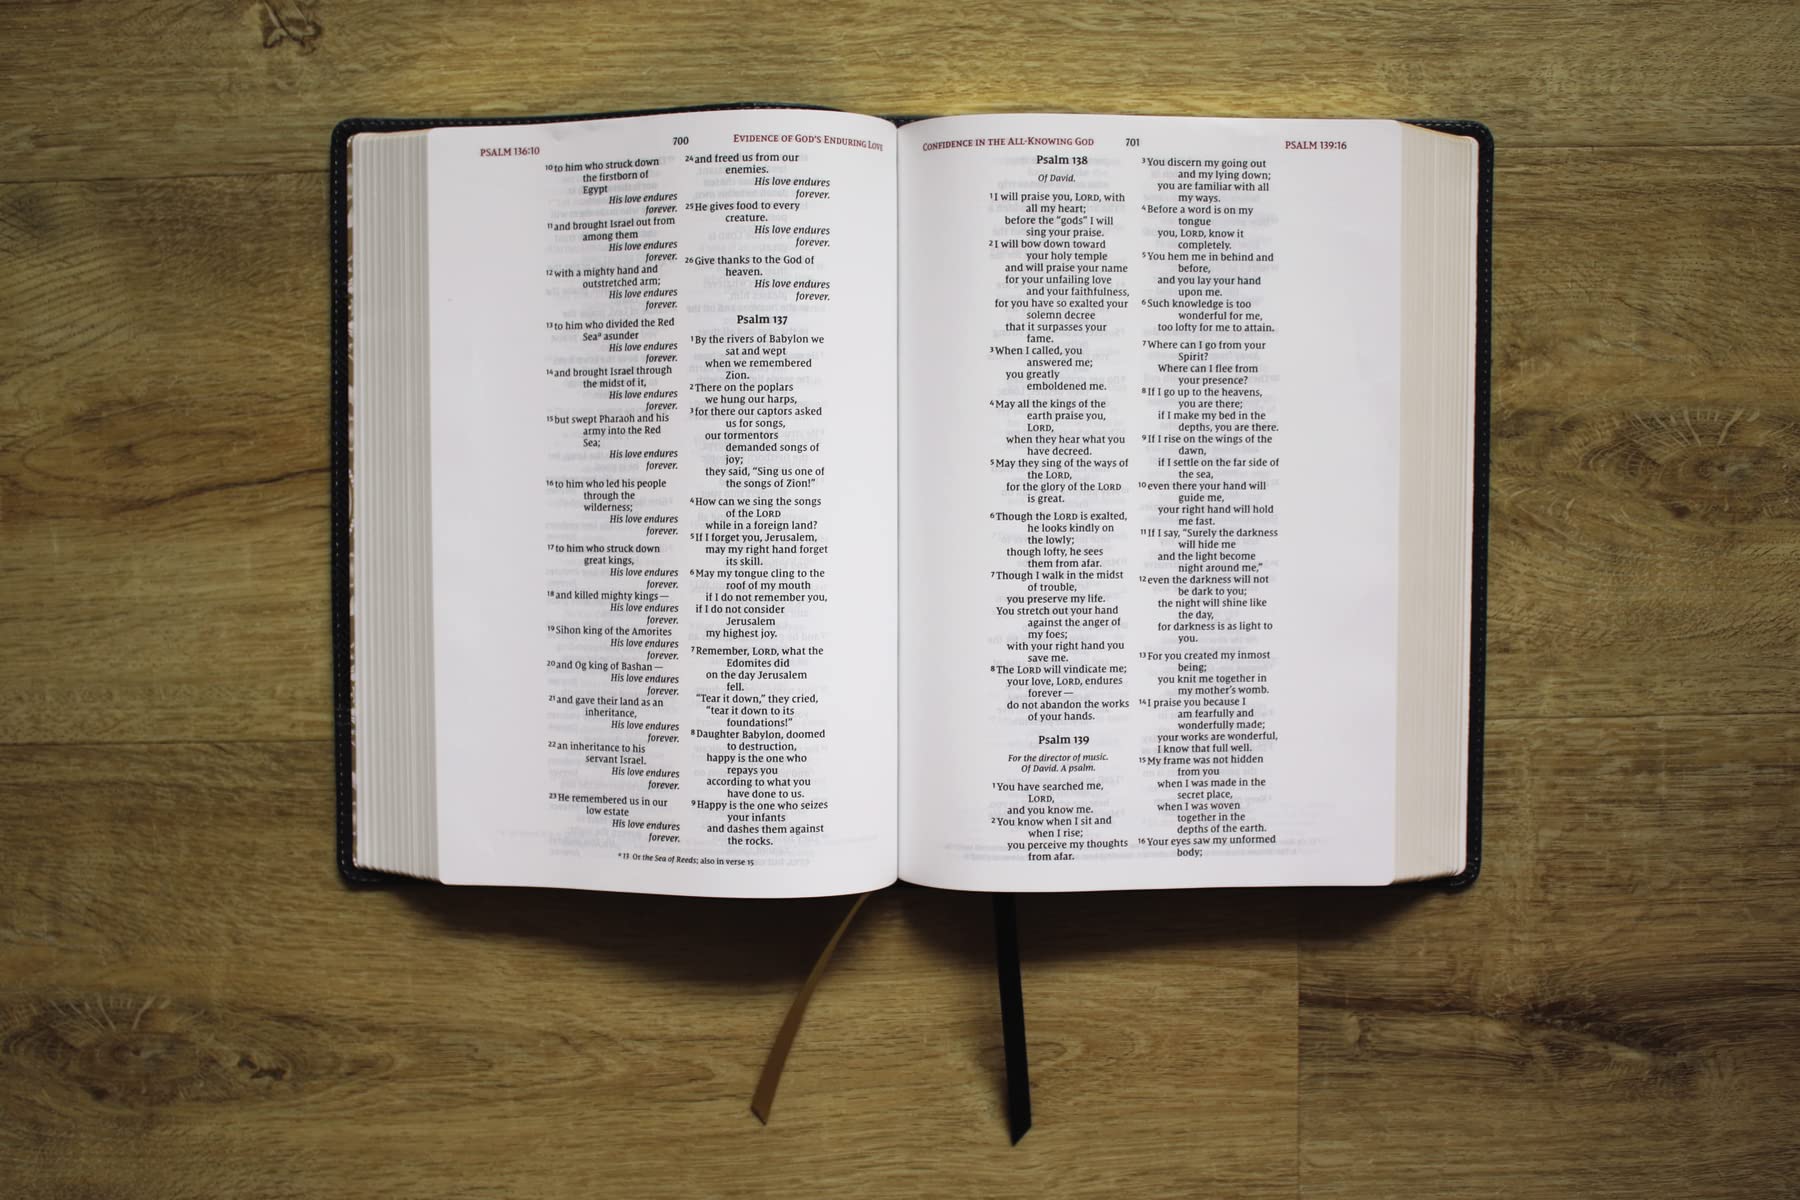 PSALM 136:10
700
EVIDENCE OF GOD'S ENDURING LOVE
10 to him who struck down
the firstborn of
Egypt
His love endures
forever.
11 and brought Israel out from
among them
His love endures
forever.
12 with a mighty hand and
outstretched arm;
His love endures
forever.
13 to him who divided the Red
Sea a asunder
His love endures
forever.
14 and brought Israel through
the midst of it,
His love endures
forever.
15 but swept Pharaoh and his
army into the Red
Sea;
His love endures
forever.
16 to him who led his people
through the
wilderness;
His love endures
forever.
17 to him who struck down
great kings,
His love endures
forever.
18 and killed mighty kings—
His love endures
forever.
19 Sihon king of the Amorites
His love endures
forever.
20 and Og king of Bashan—
His love endures
forever.
21 and gave their land as an
inheritance,
His love endures
forever.
22 an inheritance to his
servant Israel.
His love endures
forever.
23 He remembered us in our
low estate
His love endures
forever.
24 and freed us from our
enemies.
His love endures
forever.
25 He gives food to every
creature.
His love endures
forever.
26 Give thanks to the God of
heaven.
His love endures
forever.
Psalm 137
1 By the rivers of Babylon we
sat and wept
when we remembered
Zion.
2 There on the poplars
we hung our harps,
3 for there our captors asked
us for songs,
our tormentors
demanded songs of
joy;
they said, “Sing us one of
the songs of Zion!”
4 How can we sing the songs
of the LORD
while in a foreign land?
5 If I forget you, Jerusalem,
may my right hand forget
its skill.
6 May my tongue cling to the
roof of my mouth
if I do not remember you,
if I do not consider
Jerusalem
my highest joy.
7 Remember, LORD, what the
Edomites did
on the day Jerusalem
fell.
“Tear it down,” they cried,
“tear it down to its
foundations!”
8 Daughter Babylon, doomed
to destruction,
happy is the one who
repays you
according to what you
have done to us.
9 Happy is the one who seizes
your infants
and dashes them against
the rocks.
a 13 Or the Sea of Reeds; also in verse 15
CONFIDENCE IN THE ALL-KNOWING GOD
701
PSALM 139:16
Psalm 138
Of David.
1 I will praise you, LORD, with
all my heart;
before the “gods” I will
sing your praise.
2 I will bow down toward
your holy temple
and will praise your name
for your unfailing love
and your faithfulness,
for you have so exalted your
solemn decree
that it surpasses your
fame.
3 When I called, you
answered me;
you greatly
emboldened me.
4 May all the kings of the
earth praise you,
LORD,
when they hear what you
have decreed.
5 May they sing of the ways of
the LORD,
for the glory of the LORD
is great.
6 Though the LORD is exalted,
he looks kindly on
the lowly;
though lofty, he sees
them from afar.
7 Though I walk in the midst
of trouble,
you preserve my life.
You stretch out your hand
against the anger of
my foes;
with your right hand you
save me.
8 The LORD will vindicate me;
your love, LORD, endures
forever—
do not abandon the works
of your hands.
Psalm 139
For the director of music.
Of David. A psalm.
1 You have searched me,
LORD,
and you know me.
2 You know when I sit and
when I rise;
you perceive my thoughts
from afar.
3 You discern my going out
and my lying down;
you are familiar with all
my ways.
4 Before a word is on my
tongue
you, LORD, know it
completely.
5 You hem me in behind and
before,
and you lay your hand
upon me.
6 Such knowledge is too
wonderful for me,
too lofty for me to attain.
7 Where can I go from your
Spirit?
Where can I flee from
your presence?
8 If I go up to the heavens,
you are there;
if I make my bed in the
depths, you are there.
9 If I rise on the wings of the
dawn,
if I settle on the far side of
the sea,
10 even there your hand will
guide me,
your right hand will hold
me fast.
11 If I say, “Surely the darkness
will hide me
and the light become
night around me,”
12 even the darkness will not
be dark to you;
the night will shine like
the day,
for darkness is as light to
you.
13 For you created my inmost
being;
you knit me together in
my mother's womb.
14 I praise you because I
am fearfully and
wonderfully made;
your works are wonderful,
I know that full well.
15 My frame was not hidden
from you
when I was made in the
secret place,
when I was woven
together in the
depths of the earth.
16 Your eyes saw my unformed
body;